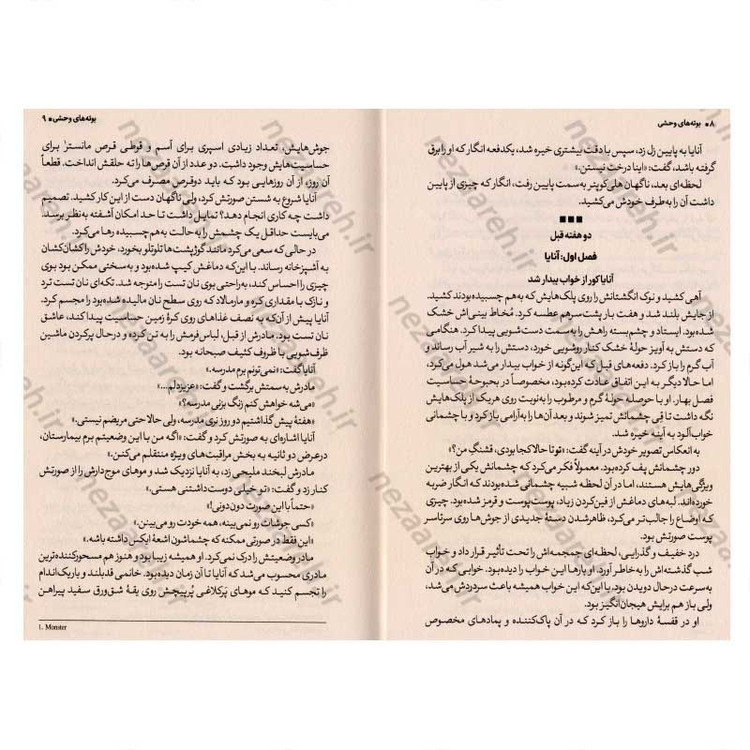 ۸ • بوته‌های وحشی
آنایا به پایین زل زد، سپس با دقت بیشتری خیره شد، یکدفعه انگار که او را برق
گرفته باشد، گفت: «اینا درخت نیستن.»
لحظه‌ای بعد، ناگهان هلی‌کوپتر به‌سمت پایین رفت، انگار که چیزی از پایین
داشت آن را به‌طرف خودش می‌کشید.
■■■
دو هفته قبل
فصل اول: آنایا
آنایا کور از خواب بیدار شد
آهی کشید و نوک انگشتانش را روی پلک‌هایش که به‌هم چسبیده بودند کشید.
از جایش بلند شد و هفت بار پشت سرهم عطسه کرد. مُخاط بینی‌اش خشک
شده‌بود. ایستاد و چشم‌بسته راهش را به‌سمت دست‌شویی پیدا کرد. هنگامی
که دستش به آویز حولهٔ خشک کنار روشویی خورد، دستش را به شیر آب رساند و
آب گرم را باز کرد. دفعه‌های قبل که این‌گونه از خواب بیدار می‌شد هول می‌کرد،
اما حالا دیگر به این اتفاق عادت کرده‌بود، مخصوصاً در بحبوحهٔ حساسیت
فصل بهار. او با حوصله حولهٔ گرم و مرطوب را به‌نوبت روی هریک از پلک‌هایش
نگه داشت تا قِی چشمانش تمیز شوند و بعد آن‌ها را به‌آرامی باز کرد و با چشمانی
خواب‌آلود به آینه خیره شد.
به انعکاس تصویر خودش در آینه گفت: «تو تا حالا کجا بودی، قشنگِ من؟»
دور چشمانش پف کرده‌بود. معمولاً فکر می‌کرد که چشمانش یکی از بهترین
ویژگی‌هایش هستند، اما در آن لحظه شبیه چشمانی شده‌بودند که انگار ضربه
خورده‌اند. لبه‌های دماغش از فین‌کردن زیاد، پوست‌پوست و قرمز شده‌بود. چیزی
که اوضاع را جالب‌تر می‌کرد، ظاهرشدن دستهٔ جدیدی از جوش‌ها روی سرتاسر
پوست صورتش بود.
درد خفیف و گذرایی، لحظه‌ای جمجمه‌اش را تحت تأثیر قرار داد و خواب
شب گذشته‌اش را به‌خاطر آورد. او بارها این خواب را دیده‌بود. خوابی که در آن
به‌سرعت درحال دویدن بود. با این‌که این خواب همیشه باعث سردردش می‌شد،
ولی باز هم برایش هیجان‌انگیز بود.
او در قفسهٔ داروها را باز کرد که در آن پاک‌کننده و پمادهای مخصوص
بوته‌های وحشی • ۹
جوش‌هایش، تعداد زیادی اسپری برای آسم و قوطی قرص مانستر¹ برای
حساسیت‌هایش وجود داشت. دو عدد از آن قرص‌ها را ته حلقش انداخت. قطعاً
آن روز، از آن روزهایی بود که باید دو قرص مصرف می‌کرد.
آنایا شروع به شستن صورتش کرد، ولی ناگهان دست از این کار کشید. تصمیم
داشت چه کاری انجام دهد؟ تمایل داشت تا حد امکان آشفته به‌نظر برسد.
می‌بایست حداقل یک چشمش را به‌حالت به‌هم چسبیده رها می‌کرد.
در حالی که سعی می‌کرد مانند گوژپشت‌ها تلوتلو بخورد، خودش را کشان‌کشان
به آشپزخانه رساند. با این‌که دماغش کیپ شده‌بود و به‌سختی ممکن بود بوی
چیزی را احساس کند، به‌راحتی بوی نان تست را متوجه شد. تکه‌ای نان تست ترد
و نازک با مقداری کره و مارمالاد که روی سطح نان مالیده شده‌بود را مجسم کرد.
آنایا پیش از آن‌که به نصف غذاهای روی کرهٔ زمین حساسیت پیدا کند، عاشق
نان تست بود. مادرش از قبل، لباس‌فرمش را به تن کرده و درحال پرکردن ماشین
ظرف‌شویی با ظروف کثیف صبحانه بود.
آنایا گفت: «نمی‌تونم برم مدرسه.»
مادرش به‌سمتش برگشت و گفت: «عزیزدلم...»
«می‌شه خواهش کنم زنگ بزنی مدرسه؟»
«هفتهٔ پیش گذاشتیم دو روز نری مدرسه، ولی حالا حتی مریضم نیستی.»
آنایا اشاره‌ای به صورتش کرد و گفت: «اگه من با این وضعیتم برم بیمارستان،
درعرض دو ثانیه به بخش مراقبت‌های ویژه منتقلم می‌کنن.»
مادرش لبخند ملیحی زد، به آنایا نزدیک شد و موهای موج‌دارش را از صورتش
کنار زد و گفت: «تو خیلی دوست‌داشتنی هستی.»
«حتماً با این صورت دون‌دونی!»
«کسی جوشات رو نمی‌بینه، همه خودت رو می‌بینن.»
«این فقط در صورتی ممکنه که چشماشون اشعهٔ ایکس داشته باشه.»
مادر وضعیتش را درک نمی‌کرد. او همیشه زیبا بود و هنوز هم مسحورکننده‌ترین
مادری محسوب می‌شد که آنایا تا آن زمان دیده‌بود. خانمی قدبلند و باریک‌اندام
را تجسم کنید که موهای پَرکلاغی پُرپیچش روی یقهٔ شق‌ورق سفید پیراهن
1. Monster
nezaareh.ir